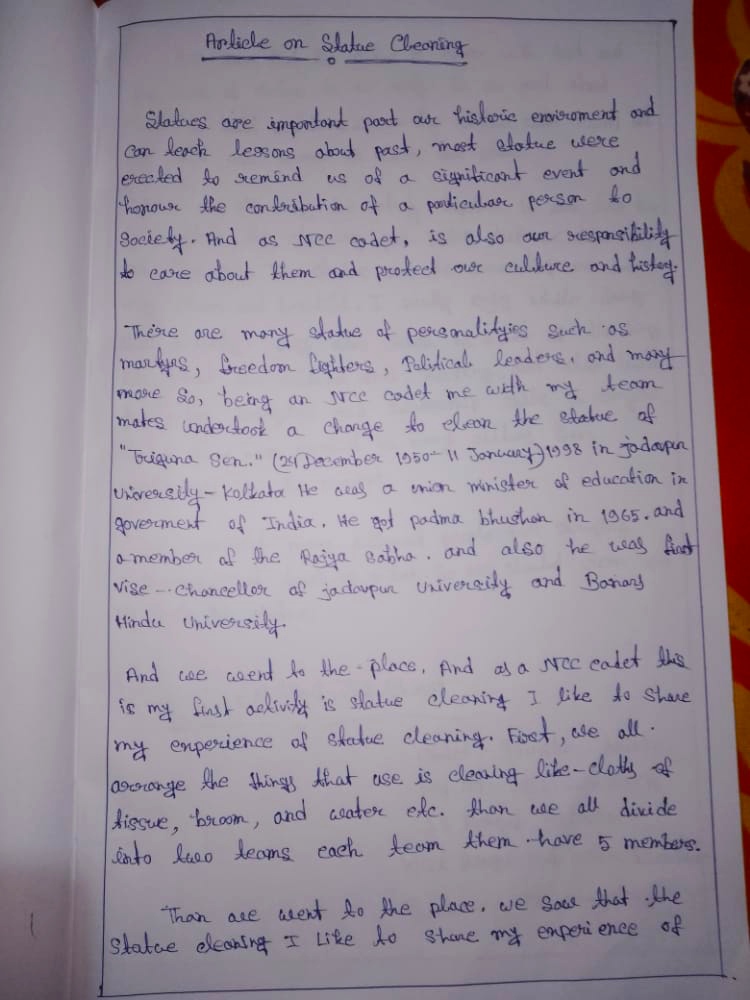 Article on Statue Cleaning
Statues are important part our historic enviroment and
can teach lessons about past, most statue were
erected to remind us of a significant event and
honour the contribution of a particular person to
society. And as NCC cadet, is also our responsibility
to care about them and protect our culture and history.
There are many statue of personalityies such as
martyrs, freedom fighters, Political leaders, and many
more so, being an NCC cadet me with my team
mates undertook a change to clean the statue of
"Triguna Sen." (24 December 1950 - 11 January) 1998 in jadavpur
University - Kolkata He was a union minister of education in
goverment of India. He got padma bhushan in 1965. and
a member of the Rajya Sabha. and also he was first
Vise - Chancellor of jadavpur University and Banars
Hindu University.
And we went to the place. And as a NCC cadet this
is my first activity is statue cleaning I like to share
my experience of statue cleaning. First, we all
arrange the things that use is cleaning like - cloths of
tissue, broom, and water etc. than we all divide
into two teams each team them have 5 members.
Than we went to the place. we saw that the
statue cleaning I Like to share my experience of